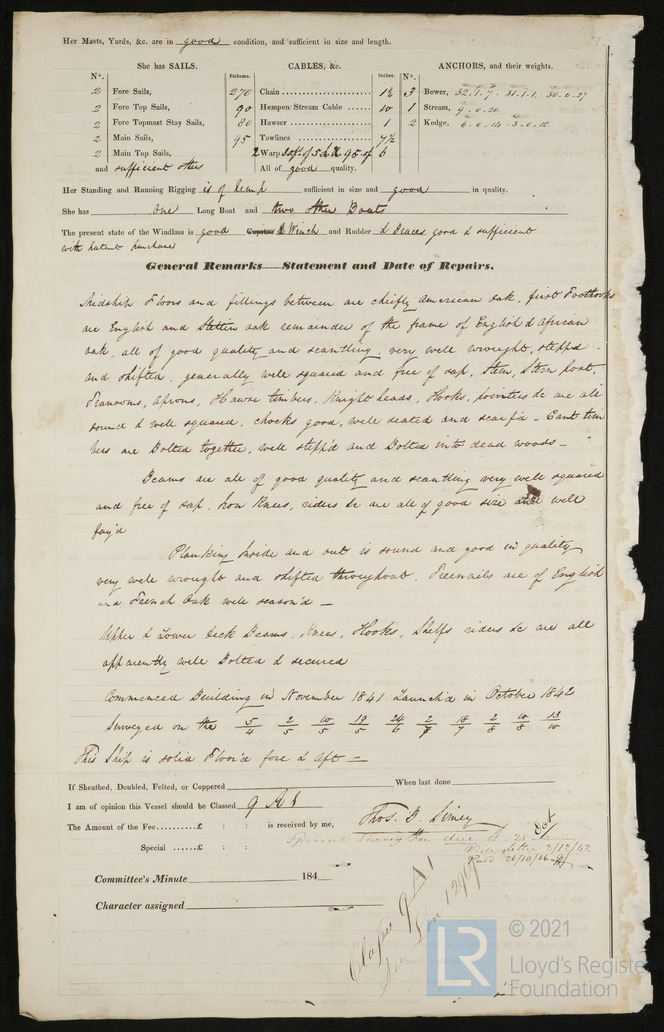 Her Masts, Yards, &c. are in good condition, and sufficient in size and length.
She has SAILS. CABLES, &c. ANCHORS, and their weights.
N°. Fathoms. Inches. N°.
2 Fore Sails, 270 Chain 1½ 3 Bower, 32.1.7 31.1.1 30.0.27
2 Fore Top Sails, 90 Hempen Stream Cable 10 1 Stream, 9.0.20
2 Fore Topmast Stay Sails, 80 Hawser 1 2 Kedge, 6.0.14 3.0.12
2 Main Sails, 95 Towlines 7½
2 Main Top Sails, 2 Warp 95 of 6
and sufficient others All of good quality.
Her Standing and Running Rigging is of Hemp sufficient in size and good in quality.
She has one Long Boat and two other Boats
The present state of the Windlass is good Capstan & Winch and Rudder & Braces good & sufficient
with patent purchase
General Remarks—Statement and Date of Repairs.
Midship Floors and fillings between are chiefly American oak, first Foothooks
are English and Stettin oak remainder of the frame of English & African
oak, all of good quality and scantling, very well wrought, stepp'd
and shifted, generally well squared and free of sap, Stem, Stern post,
Transoms, Aprons, Hawse timbers, Knight heads, Hooks, pointers &c are all
sound & well squared, chocks good, well seated and scarf'd - Cant tim
bers are Bolted together, well stepp'd and Bolted into dead woods -
Beams are all of good quality and scantling very well squared
and free of sap, Iron Knees, riders &c are all of good size and well
fay'd
Planking Inside and out is sound and good in quality
very well wrought and shifted throughout, Treenails are of English
and French Oak well season'd -
Upper & Lower Deck Beams, Knees, Hooks, Shelfs riders &c are all
apparently well Bolted & secured
Commenced Building in November 1841 Launch'd in October 1842
Surveyed on the 5/4 2/5 10/5 19/5 24/6 2/7 18/7 2/8 10/8 13/10
This Ship is solid Floor'd fore & Aft -
If Sheathed, Doubled, Felted, or Coppered When last done
I am of opinion this Vessel should be Classed 9 A 1
The Amount of the Fee £ : : is received by me, Thos. B. Simey
Special £ : :
Special
Wrote letter 2/12/42
Paid 26/10/46
Committee's Minute 184
Character assigned
9 A 1
© 2021
LR Lloyd's Register
Foundation